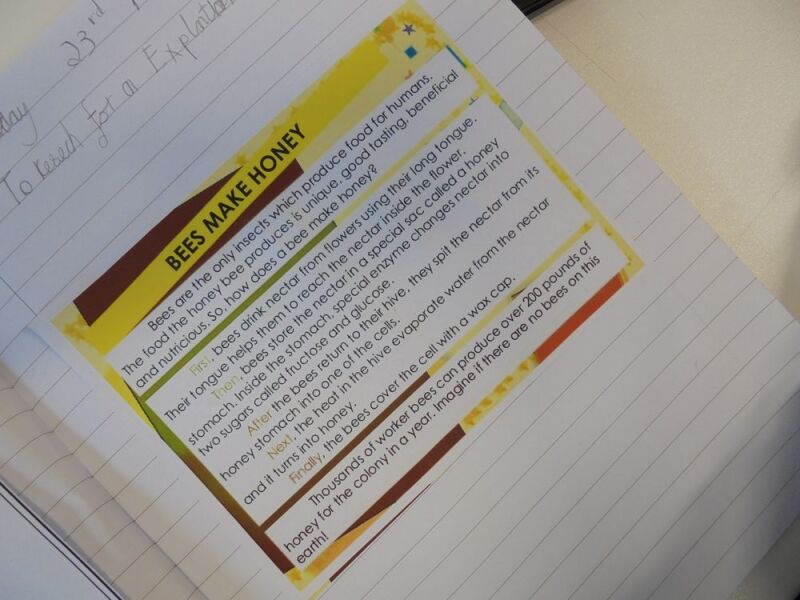 day 23rd
To for an
BEES MAKE HONEY
Bees are the only insects which produce food for humans.
The food the honey bee produces is unique, good tasting, beneficial
and nutricious. So, how does a bee make honey?
First, bees drink nectar from flowers using their long tongue.
Their tongue helps them to reach the nectar inside the flower.
Then, bees store the nectar in a special sac called a honey
stomach. Inside the stomach, special enzyme changes nectar into
two sugars called fructose and glucose.
After the bees return to their hive, they spit the nectar from its
honey stomach into one of the cells.
Next, the heat in the hive evaporate water from the nectar
and it turns into honey.
Finally, the bees cover the cell with a wax cap.
Thousands of worker bees can produce over 200 pounds of
honey for the colony in a year. Imagine if there are no bees on this
earth!